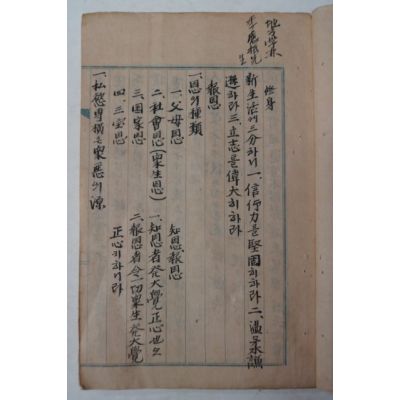 修身
新生活에 三分하니 一、信仰力을 堅固히하라 二、溫柔謙
遜하라 三、立志를 偉大히하라
報恩
一、恩의 種類
一、父母恩 知恩報恩
二、社會恩(衆生恩) 一、知恩者發大覺正心也오
三、国家恩 二、報恩者令一切衆生發大覺
四、三宝恩 正心케하니라
一、私慾専横은 衆惡의 源